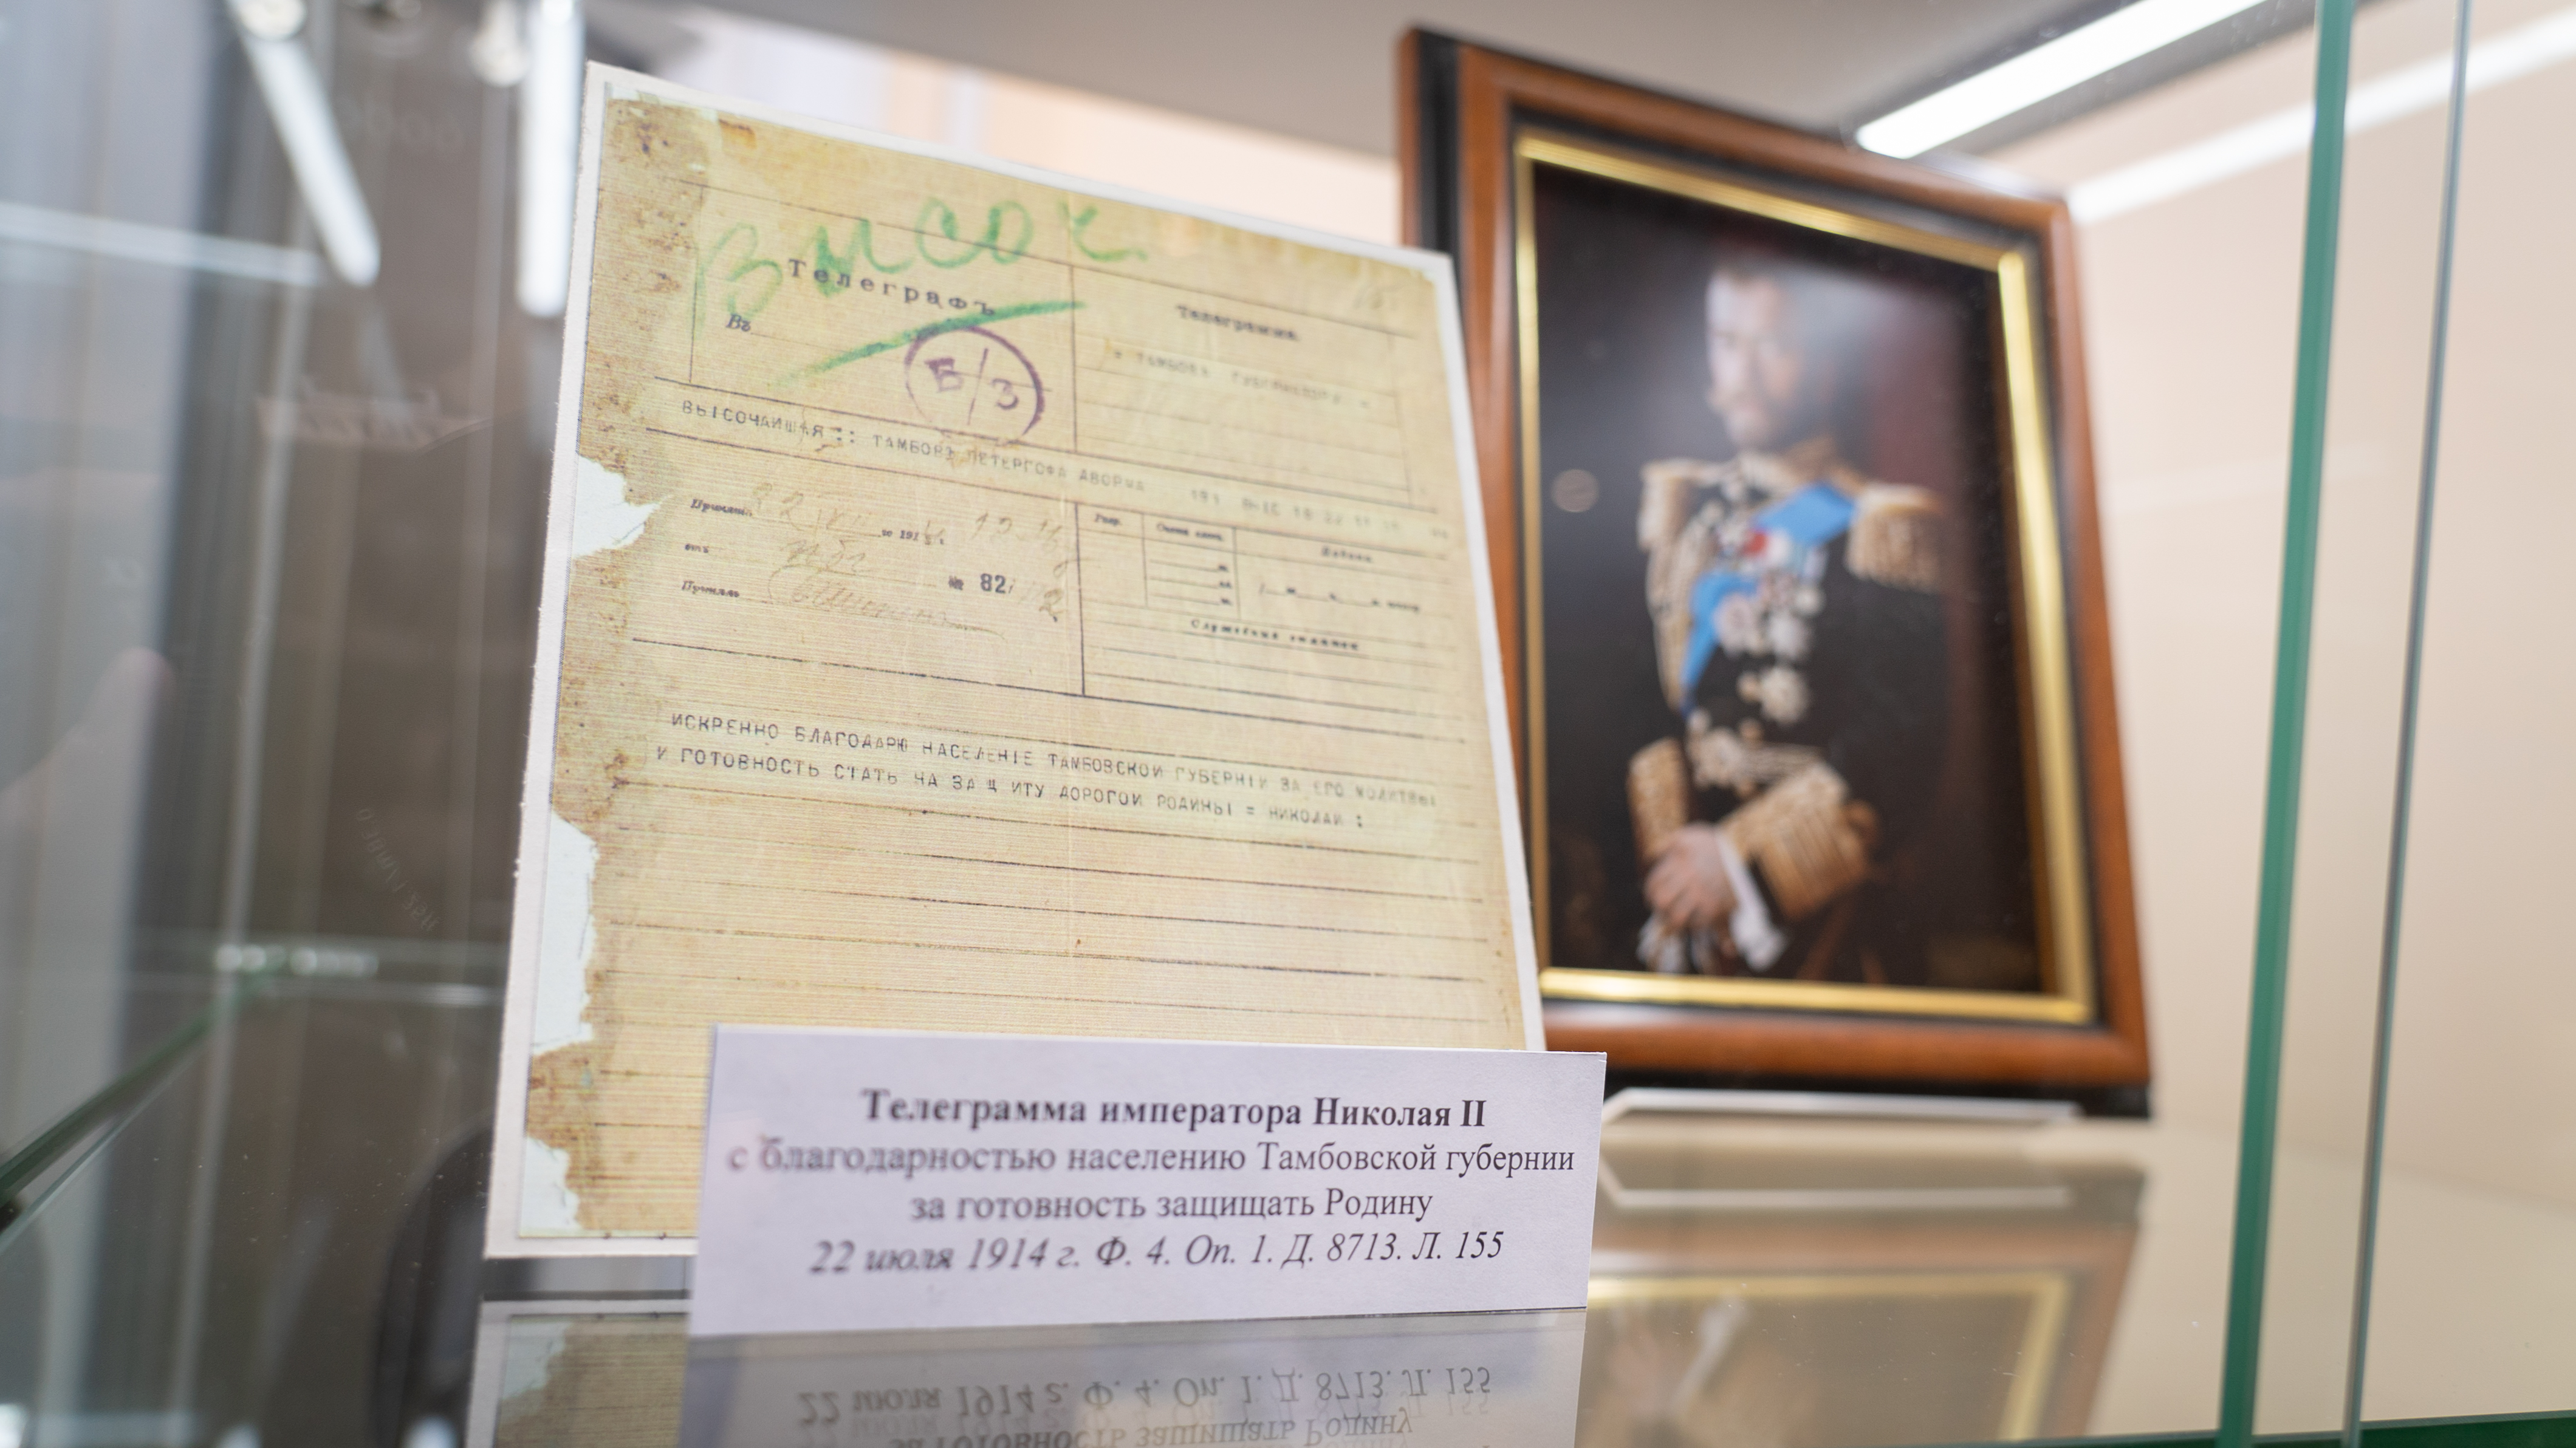 Высоч.
Телеграфъ
Въ
Б/З
Телеграмма
= ТАМБОВЪ ГУБЕРНАТОРУ =
ВЫСОЧАИШАЯ :: ТАМБОВЪ ПЕТЕРГОФА ДВОРЦА
Принята 22 VII го 191
отъ № 82
Принялъ
Служебныя отмѣтки
ИСКРЕННО БЛАГОДАРЮ НАСЕЛЕНIЕ ТАМБОВСКОИ ГУБЕРНIИ ЗА ЕГО МОЛИТВЫ
И ГОТОВНОСТЬ СТАТЬ НА ЗА Щ ИТУ ДОРОГОИ РОДИНЫ = НИКОЛАИ :
Телеграмма императора Николая II
с благодарностью населению Тамбовской губернии
за готовность защищать Родину
22 июля 1914 г. Ф. 4. Оп. 1. Д. 8713. Л. 155